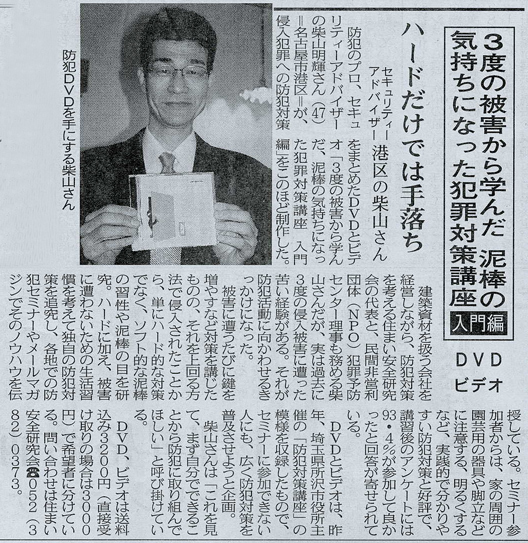 ３度の被害から学んだ 泥棒の
気持ちになった犯罪対策講座
入門編
ＤＶＤ
ビデオ
ハードだけでは手落ち
セキュリティー
アドバイザー
港区の柴山さん
防犯ＤＶＤを手にする柴山さん
防犯のプロ、セキュ
リティーアドバイザー
の柴山明輝さん（47）
＝名古屋市港区＝が、
侵入犯罪への防犯対策
をまとめたＤＶＤとビデ
オ「３度の被害から学ん
だ、泥棒の気持ちになっ
た犯罪対策講座 入門
編」をこのほど制作した。
建築資材を扱う会社を
経営しながら、防犯対策
を考える住まい安全研究
会の代表と、民間非営利
団体（ＮＰＯ）犯罪予防
センター理事も務める柴
山さんだが、実は過去に
３度の侵入被害に遭った
苦い経験がある。それが
防犯活動に向かわせるき
っかけになった。
被害に遭うたびに鍵を
増やすなど対策を講じた
ものの、それを上回る方
法で侵入されたことか
ら、単にハード的な対策
でなく、ソフト的な泥棒
の習性や泥棒の目を研
究。ハードに加え、被害
に遭わないための生活習
慣を考えて独自の防犯対
策を追究し、各地での防
犯セミナーやメールマガ
ジンでそのノウハウを伝
授している。セミナー参
加者からは、家の周囲の
園芸用の器具や脚立など
に注意する、明るくする
など、実践的で分かりや
すい防犯対策と好評で、
講習後のアンケートには
93・４％が参加して良か
ったと回答が寄せられて
いる。
ＤＶＤとビデオは、昨
年、埼玉県所沢市役所主
催の「防犯対策講座」の
模様を収録したもので、
セミナーに参加できない
人にも、広く防犯対策を
普及させようと企画。
柴山さんは「これを見
て、まず自分でできるこ
とから防犯に取り組んで
ほしい」と呼び掛けてい
る。
ＤＶＤ、ビデオは送料
込み３２００円（直接受
け取りの場合は３０００
円）で希望者に分けてい
る。問い合わせは住まい
安全研究会☎０５２（３
８２）０３７３。